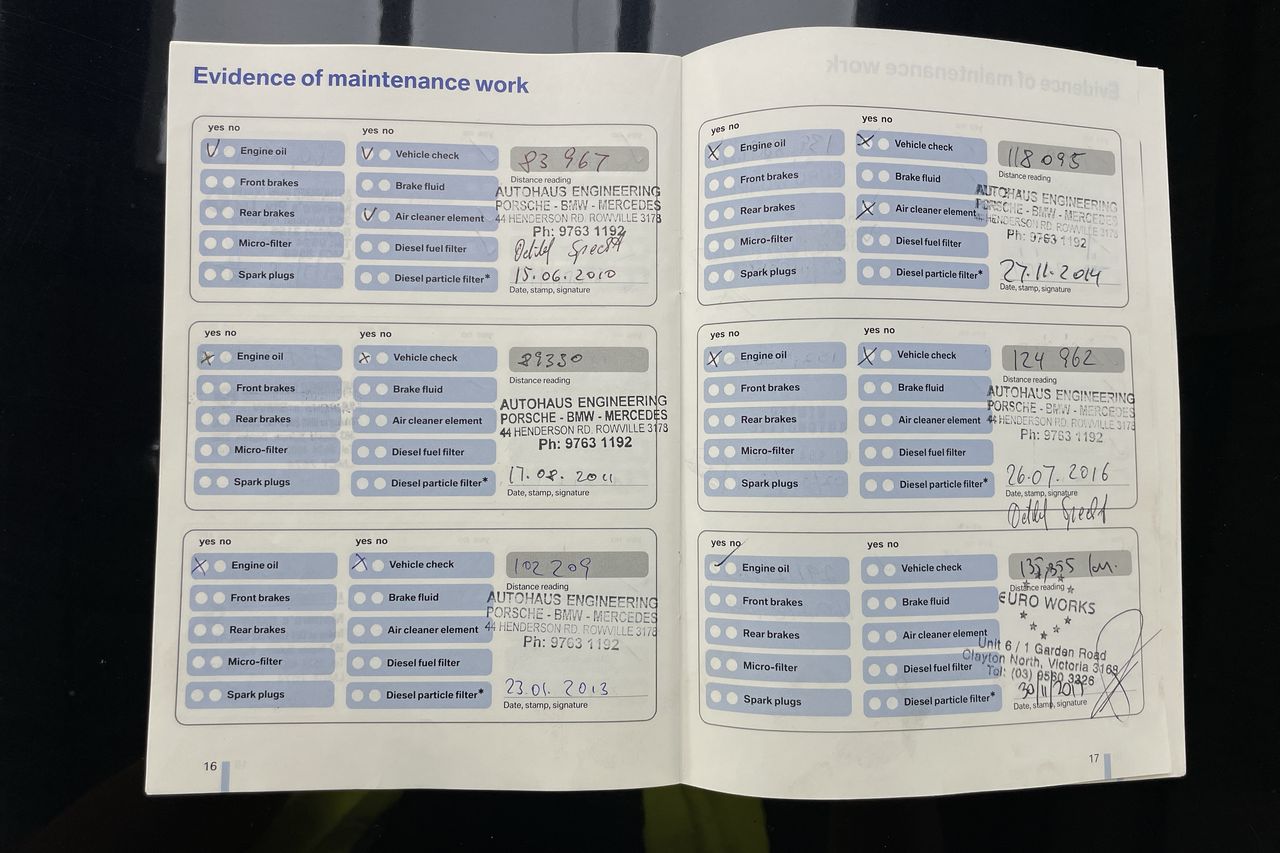 Evidence of maintenance work
yes no
yes no
Engine oil
Vehicle check
83 967
Distance reading
Front brakes
Brake fluid
AUTOHAUS ENGINEERING
PORSCHE - BMW - MERCEDES
Rear brakes
Air cleaner element
44 HENDERSON RD. ROWVILLE 3178
Ph: 9763 1192
Micro-filter
Diesel fuel filter
Detlef Specht
Spark plugs
Diesel particle filter*
15.06.2010
Date, stamp, signature
yes no
yes no
Engine oil
Vehicle check
89330
Distance reading
Front brakes
Brake fluid
AUTOHAUS ENGINEERING
PORSCHE - BMW - MERCEDES
Rear brakes
Air cleaner element
44 HENDERSON RD. ROWVILLE 3178
Ph: 9763 1192
Micro-filter
Diesel fuel filter
17.08.2011
Spark plugs
Diesel particle filter*
Date, stamp, signature
yes no
yes no
Engine oil
Vehicle check
102 209
Distance reading
Front brakes
Brake fluid
AUTOHAUS ENGINEERING
PORSCHE - BMW - MERCEDES
Rear brakes
Air cleaner element
44 HENDERSON RD. ROWVILLE 3178
Ph: 9763 1192
Micro-filter
Diesel fuel filter
23.01.2013
Spark plugs
Diesel particle filter*
Date, stamp, signature
16
Evidence of maintenance work
yes no
yes no
Engine oil
Vehicle check
118 095
Distance reading
Front brakes
Brake fluid
AUTOHAUS ENGINEERING
PORSCHE - BMW - MERCEDES
Rear brakes
Air cleaner element
44 HENDERSON RD. ROWVILLE 3178
Ph: 9763 1192
Micro-filter
Diesel fuel filter
27.11.2014
Spark plugs
Diesel particle filter*
Date, stamp, signature
yes no
yes no
Engine oil
Vehicle check
124 962
Distance reading
Front brakes
Brake fluid
AUTOHAUS ENGINEERING
PORSCHE - BMW - MERCEDES
Rear brakes
Air cleaner element
44 HENDERSON RD. ROWVILLE 3178
Ph: 9763 1192
Micro-filter
Diesel fuel filter
26.07.2016
Spark plugs
Diesel particle filter*
Date, stamp, signature
Detlef Specht
yes no
yes no
Engine oil
Vehicle check
Distance reading
Front brakes
Brake fluid
€URO WORKS
Rear brakes
Air cleaner element
Unit 6 / 1 Garden Road
Clayton North, Victoria 3168
Micro-filter
Diesel fuel filter
Tel: (03) 9560 3326
Spark plugs
Diesel particle filter*
Date, stamp, signature
17